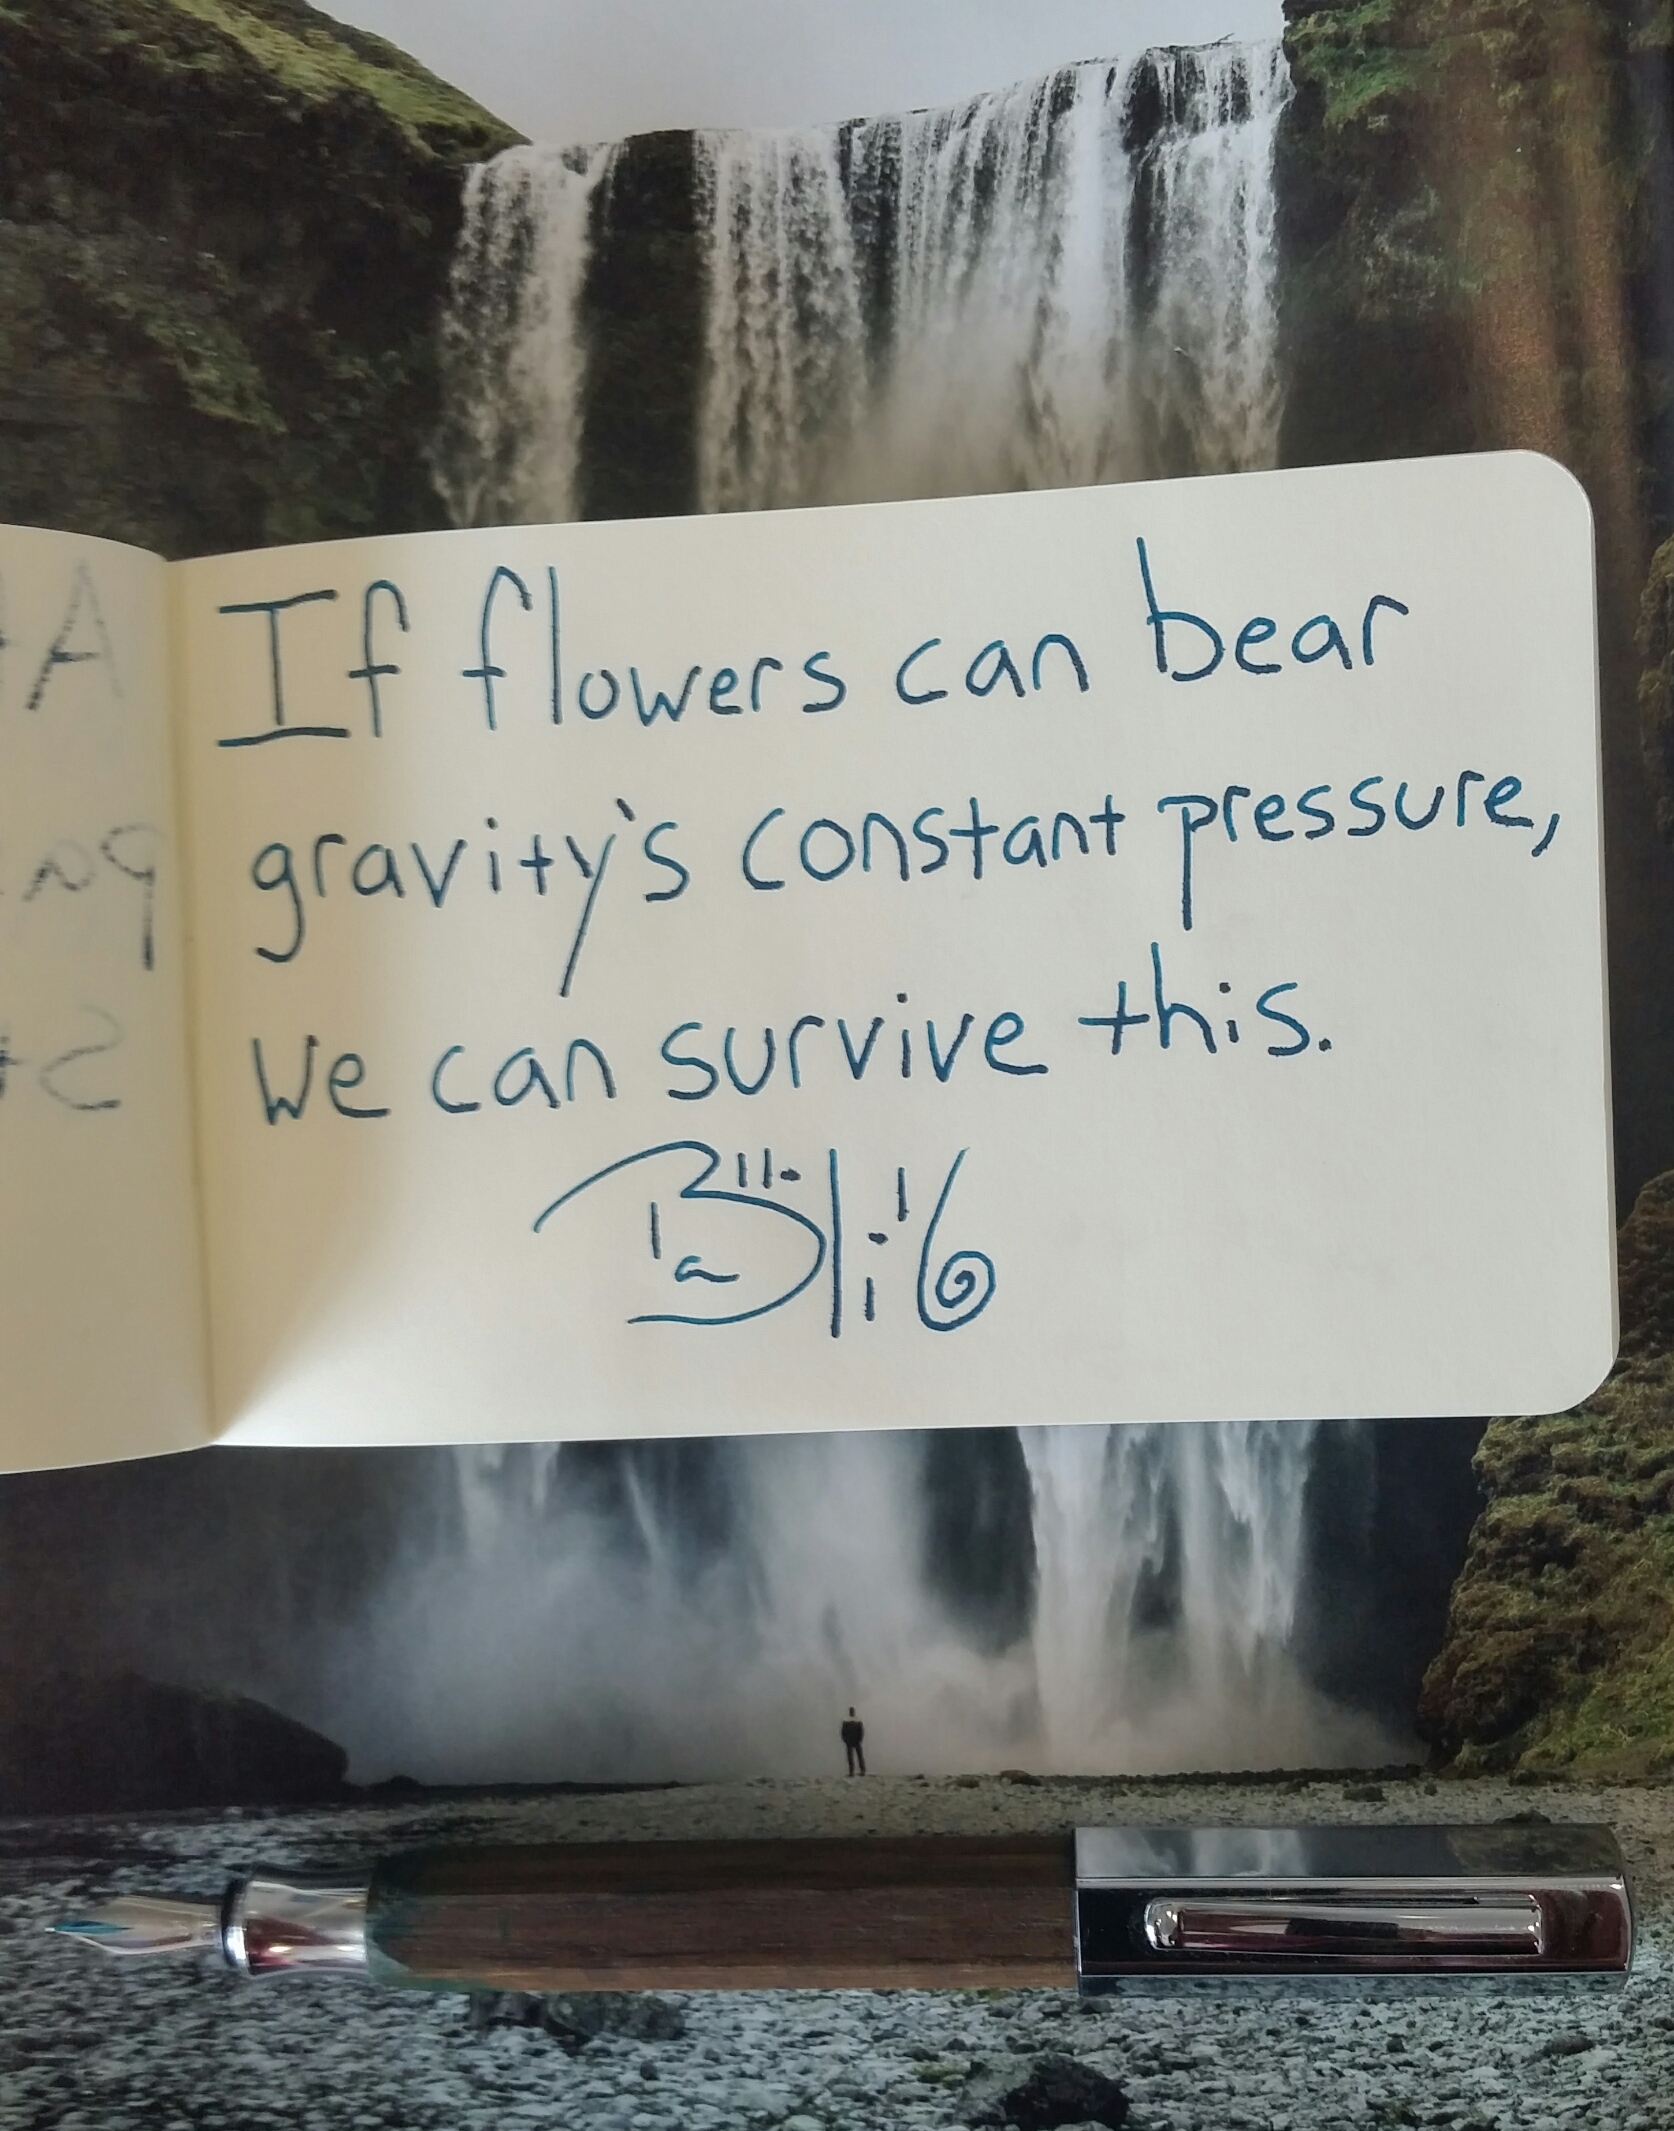 If flowers can bear
gravity's constant pressure,
We can survive this.